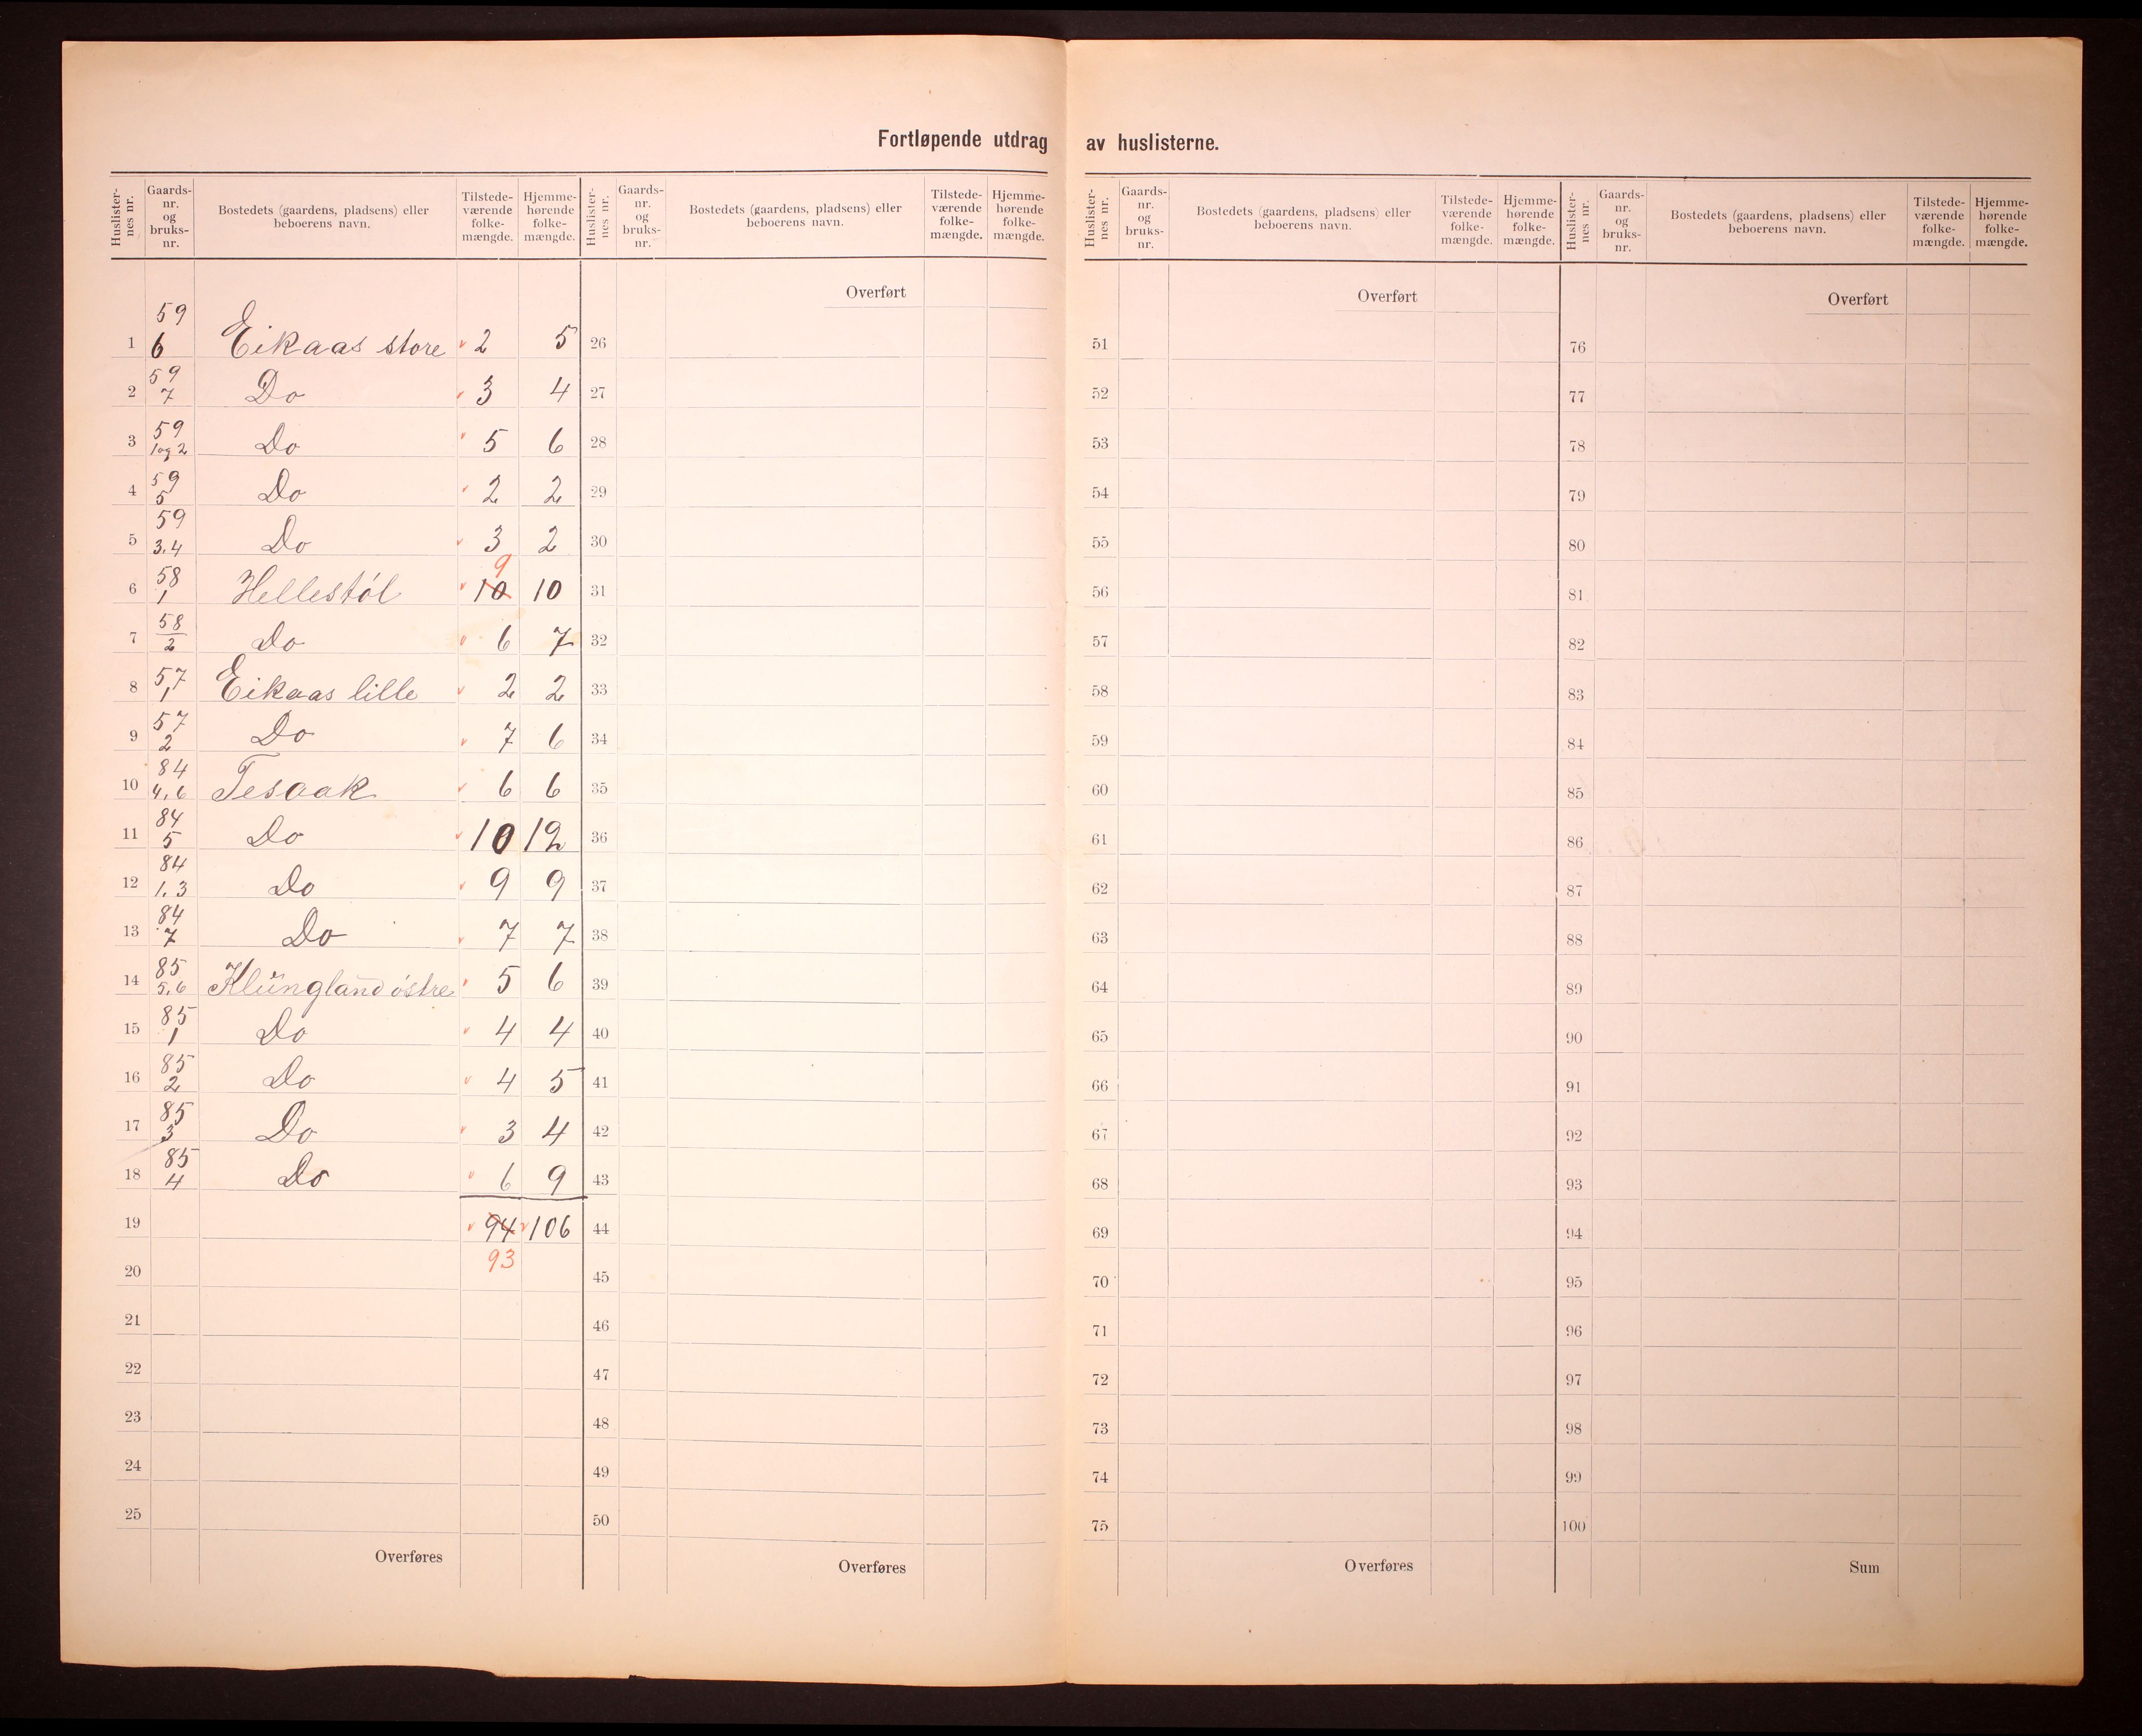 Fortløpende utdrag av huslisterne.
Huslister-nes nr. Gaards-nr. og bruks-nr. Bostedets (gaardens, pladsens) eller beboerens navn. Tilstede-værende folke-mængde. Hjemme-hørende folke-mængde.
1 59 6 Eikaas store 2 5
2 59 7 Do 3 4
3 59 1 og 2 Do 5 6
4 59 5 Do 2 2
5 59 3.4 Do 3 2
6 58 1 Hellestøl 10 9 10
7 58 2 Do 6 7
8 57 1 Eikaas lille 2 2
9 57 2 Do 7 6
10 84 4,6 Tesaak 6 6
11 84 5 Do 10 12
12 84 1.3 Do 9 9
13 84 7 Do 7 7
14 85 5,6 Klungland østre 5 6
15 85 1 Do 4 4
16 85 2 Do 4 5
17 85 3 Do 3 4
18 85 4 Do 6 9
19 94 106
20 93
21
22
23
24
25
Overføres
Huslister-nes nr. Gaards-nr. og bruks-nr. Bostedets (gaardens, pladsens) eller beboerens navn. Tilstede-værende folke-mængde. Hjemme-hørende folke-mængde.
Overført
26
27
28
29
30
31
32
33
34
35
36
37
38
39
40
41
42
43
44
45
46
47
48
49
50
Overføres
Huslister-nes nr. Gaards-nr. og bruks-nr. Bostedets (gaardens, pladsens) eller beboerens navn. Tilstede-værende folke-mængde. Hjemme-hørende folke-mængde.
Overført
51
52
53
54
55
56
57
58
59
60
61
62
63
64
65
66
67
68
69
70
71
72
73
74
75
Overføres
Huslister-nes nr. Gaards-nr. og bruks-nr. Bostedets (gaardens, pladsens) eller beboerens navn. Tilstede-værende folke-mængde. Hjemme-hørende folke-mængde.
Overført
76
77
78
79
80
81
82
83
84
85
86
87
88
89
90
91
92
93
94
95
96
97
98
99
100
Sum